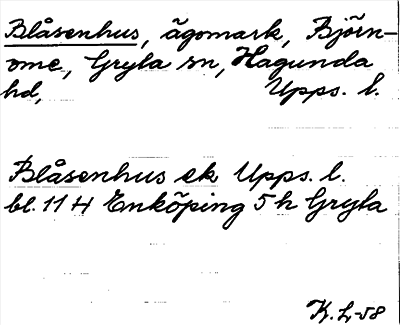 Blåsenhus, ägomark, Björn-
ome, Gryta sn, Hagunda
hd, Upps. l.
Blåsenhus ek Upps. l.
bl. 114 Enköping 5h Gryta
K. L-58